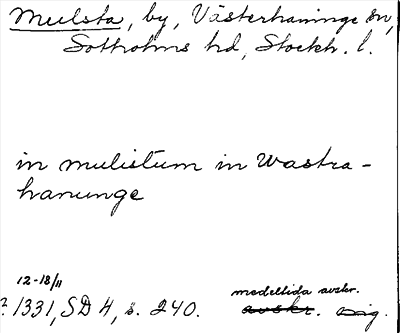 Mulsta, by, Västerhaninge sn,
Sotholms hd, Stockh. l.
in mulistum in Wastra-
hanunge
12-18/11
? 1331, SD 4, s. 240.
medeltida avskr.
avskr. orig.